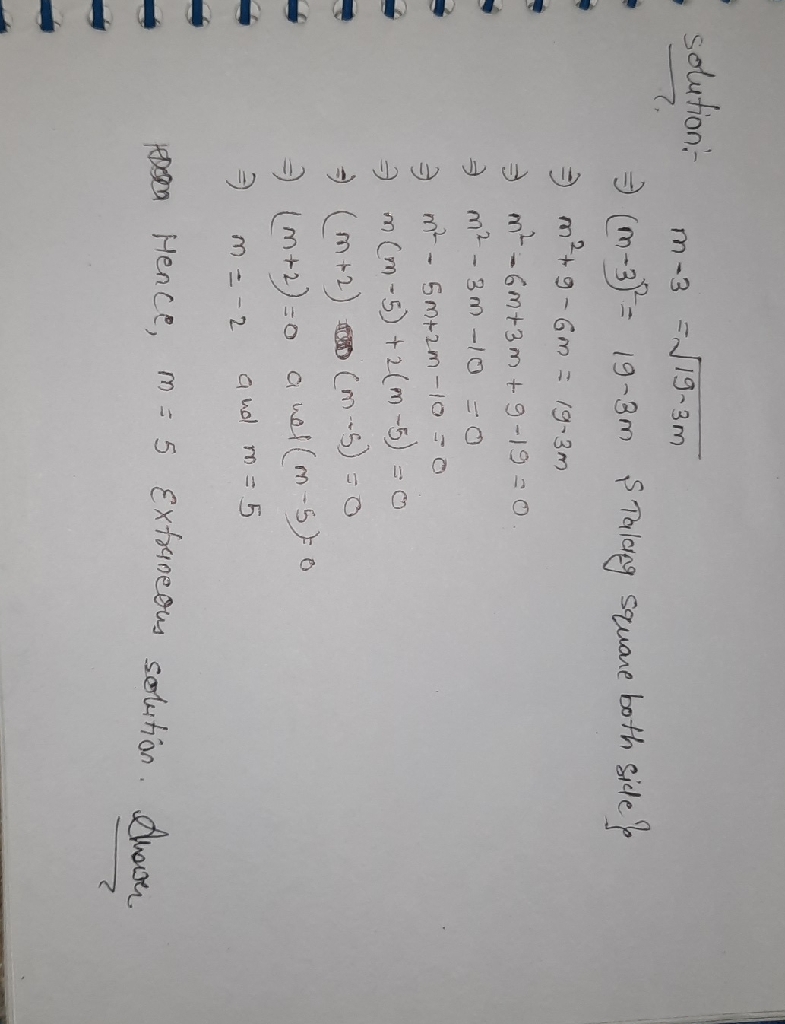 Solution:-
m-3 = √19-3m
⇒ (m-3)² = 19-3m {Taking square both side}
⇒ m²+9-6m = 19-3m
⇒ m²-6m+3m+9-19=0.
⇒ m²-3m-10=0
⇒ m²-5m+2m-10=0
⇒ m(m-5)+2(m-5)=0
⇒ (m+2) (m-5)=0
⇒ (m+2)=0 and (m-5)=0
⇒ m=-2 and m=5
Hence, m=5 Extraneous solution. Answer